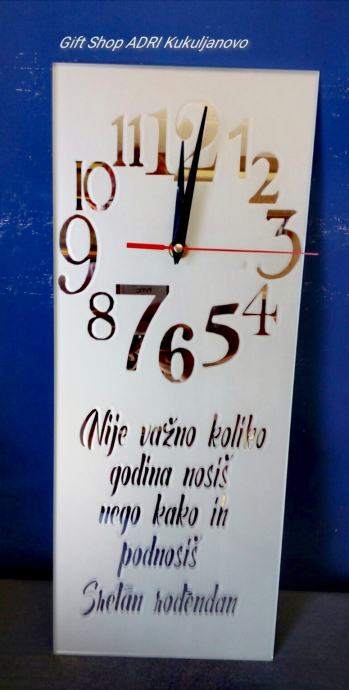 Gift Shop ADRI Kukuljanovo
11 12 1
10 2
9 3
8 4
7 6 5
Nije važno koliko
godina nosiš
nego kako ih
podnosiš
Sretan rođendan